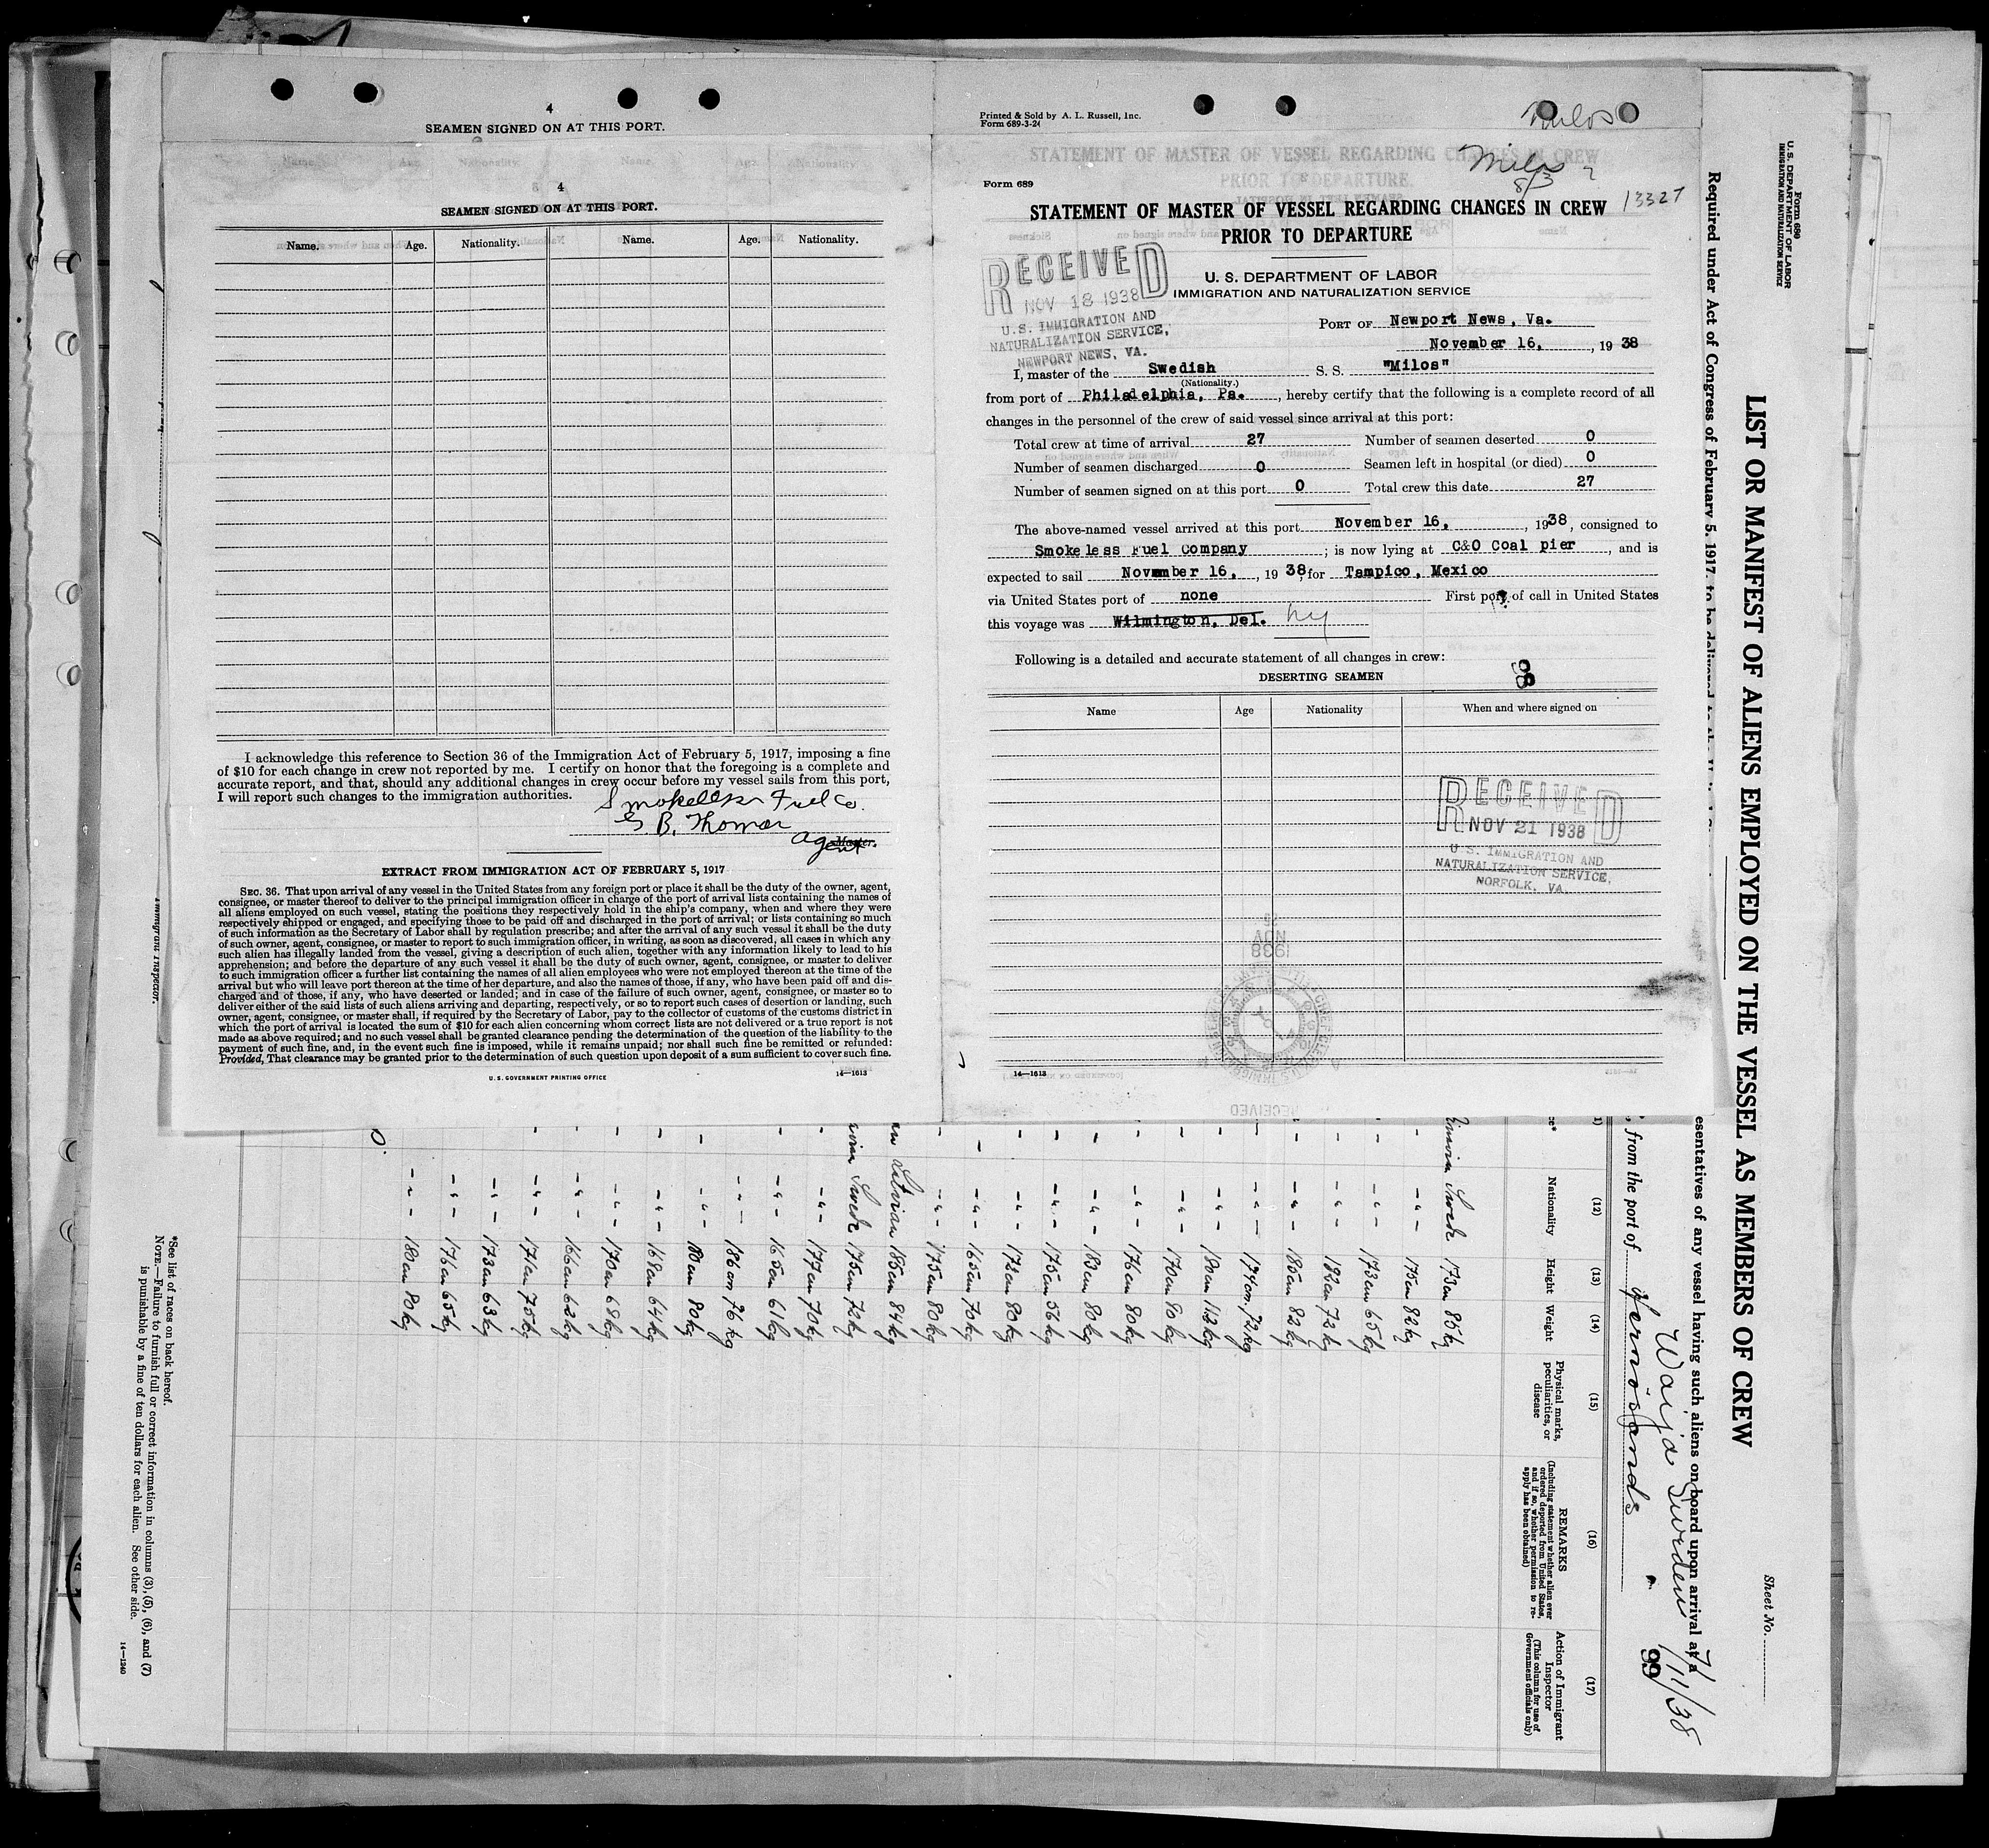 4
SEAMEN SIGNED ON AT THIS PORT.
4
SEAMEN SIGNED ON AT THIS PORT.
Name. Age. Nationality. Name. Age. Nationality.
I acknowledge this reference to Section 36 of the Immigration Act of February 5, 1917, imposing a fine
of $10 for each change in crew not reported by me. I certify on honor that the foregoing is a complete and
accurate report, and that, should any additional changes in crew occur before my vessel sails from this port,
I will report such changes to the immigration authorities.
Smokeless Fuel Co.
B. Thomas
Agent
Master.
EXTRACT FROM IMMIGRATION ACT OF FEBRUARY 5, 1917
SEC. 36. That upon arrival of any vessel in the United States from any foreign port or place it shall be the duty of the owner, agent,
consignee, or master thereof to deliver to the principal immigration officer in charge of the port of arrival lists containing the names of
all aliens employed on such vessel, stating the positions they respectively hold in the ship's company, when and where they were
respectively shipped or engaged, and specifying those to be paid off and discharged in the port of arrival; or lists containing so much
of such information as the Secretary of Labor shall by regulation prescribe; and after the arrival of any such vessel it shall be the duty
of such owner, agent, consignee, or master to report to such immigration officer, in writing, as soon as discovered, all cases in which any
such alien has illegally landed from the vessel, giving a description of such alien, together with any information likely to lead to his
apprehension; and before the departure of any such vessel it shall be the duty of such owner, agent, consignee, or master to deliver
to such immigration officer a further list containing the names of all alien employees who were not employed thereon at the time of the
arrival but who will leave port thereon at the time of her departure, and also the names of those, if any, who have been paid off and dis-
charged and of those, if any, who have deserted or landed; and in case of the failure of such owner, agent, consignee, or master so to
deliver either of the said lists of such aliens arriving and departing, respectively, or so to report such cases of desertion or landing, such
owner, agent, consignee, or master shall, if required by the Secretary of Labor, pay to the collector of customs of the customs district in
which the port of arrival is located the sum of $10 for each alien concerning whom correct lists are not delivered or a true report is not
made as above required; and no such vessel shall be granted clearance pending the determination of the question of the liability to the
payment of such fine, and, in the event such fine is imposed, while it remains unpaid; nor shall such fine be remitted or refunded:
Provided, That clearance may be granted prior to the determination of such question upon deposit of a sum sufficient to cover such fine.
U. S. GOVERNMENT PRINTING OFFICE 14—1613
Printed & Sold by A. L. Russell, Inc.
Form 689-3-24
Milos
Milos
8/3
13327
Form 689
STATEMENT OF MASTER OF VESSEL REGARDING CHANGES IN CREW
PRIOR TO DEPARTURE
U. S. DEPARTMENT OF LABOR
IMMIGRATION AND NATURALIZATION SERVICE
RECEIVED
NOV 18 1938
U.S. IMMIGRATION AND
NATURALIZATION SERVICE,
NEWPORT NEWS, VA.
PORT OF Newport News, Va.
November 16, , 19 38
I, master of the Swedish S. S. "Milos"
(Nationality.)
from port of Philadelphia, Pa. , hereby certify that the following is a complete record of all
changes in the personnel of the crew of said vessel since arrival at this port:
Total crew at time of arrival 27 Number of seamen deserted 0
Number of seamen discharged 0 Seamen left in hospital (or died) 0
Number of seamen signed on at this port 0 Total crew this date 27
The above-named vessel arrived at this port November 16, , 1938, consigned to
Smokeless Fuel Company ; is now lying at C&O Coal pier , and is
expected to sail November 16, , 19 38, for Tampico, Mexico
via United States port of none First port of call in United States
this voyage was Wilmington, Del. Ny
Following is a detailed and accurate statement of all changes in crew:
DESERTING SEAMEN
98
Name Age Nationality When and where signed on
RECEIVED
NOV 21 1938
U.S. IMMIGRATION AND
NATURALIZATION SERVICE,
NORFOLK, VA.
14—1613
Form 680
U. S. DEPARTMENT OF LABOR
IMMIGRATION AND NATURALIZATION SERVICE
Sheet No.
LIST OR MANIFEST OF ALIENS EMPLOYED ON THE VESSEL AS MEMBERS OF CREW
Required under Act of Congress of February 5, 1917, to be delivered to the
esentatives of any vessel having such aliens on board upon arrival at a
Sweden 7/11/38
, from the port of
99
(12) (13) (14) (15) (16) (17)
Nationality
Height
Weight
Physical marks, peculiarities, or disease
REMARKS
(Including statement whether alien ever ordered deported from United States, and if so, whether permission to re-apply has been obtained)
Action of Immigrant Inspector
(This column for use of Government officials only)
Swede 173cm 85kg
-"- 175cm 82kg
-"- 173cm 65kg
-"- 182cm 72kg
-"- 185cm 82kg
-"- 174cm 72kg
-"- 180cm 112kg
-"- 170cm 80kg
-"- 176cm 80kg
-"- 183cm 80kg
-"- 175cm 56kg
-"- 172cm 80kg
-"- 165cm 70kg
-"- 175cm 80kg
Latvian 185cm 84kg
Swede 175cm 72kg
-"- 177cm 70kg
-"- 165cm 61kg
-"- 186cm 76kg
-"- 180cm 80kg
-"- 168cm 64kg
-"- 170cm 68kg
-"- 166cm 62kg
-"- 171cm 75kg
-"- 173cm 63kg
-"- 176cm 65kg
-"- 180cm 80kg
Immigrant Inspector.
*See list of races on back hereof.
NOTE.—Failure to furnish full or correct information in columns (3), (5), (6), and (7)
is punishable by a fine of ten dollars for each alien. See other side.
14—1240